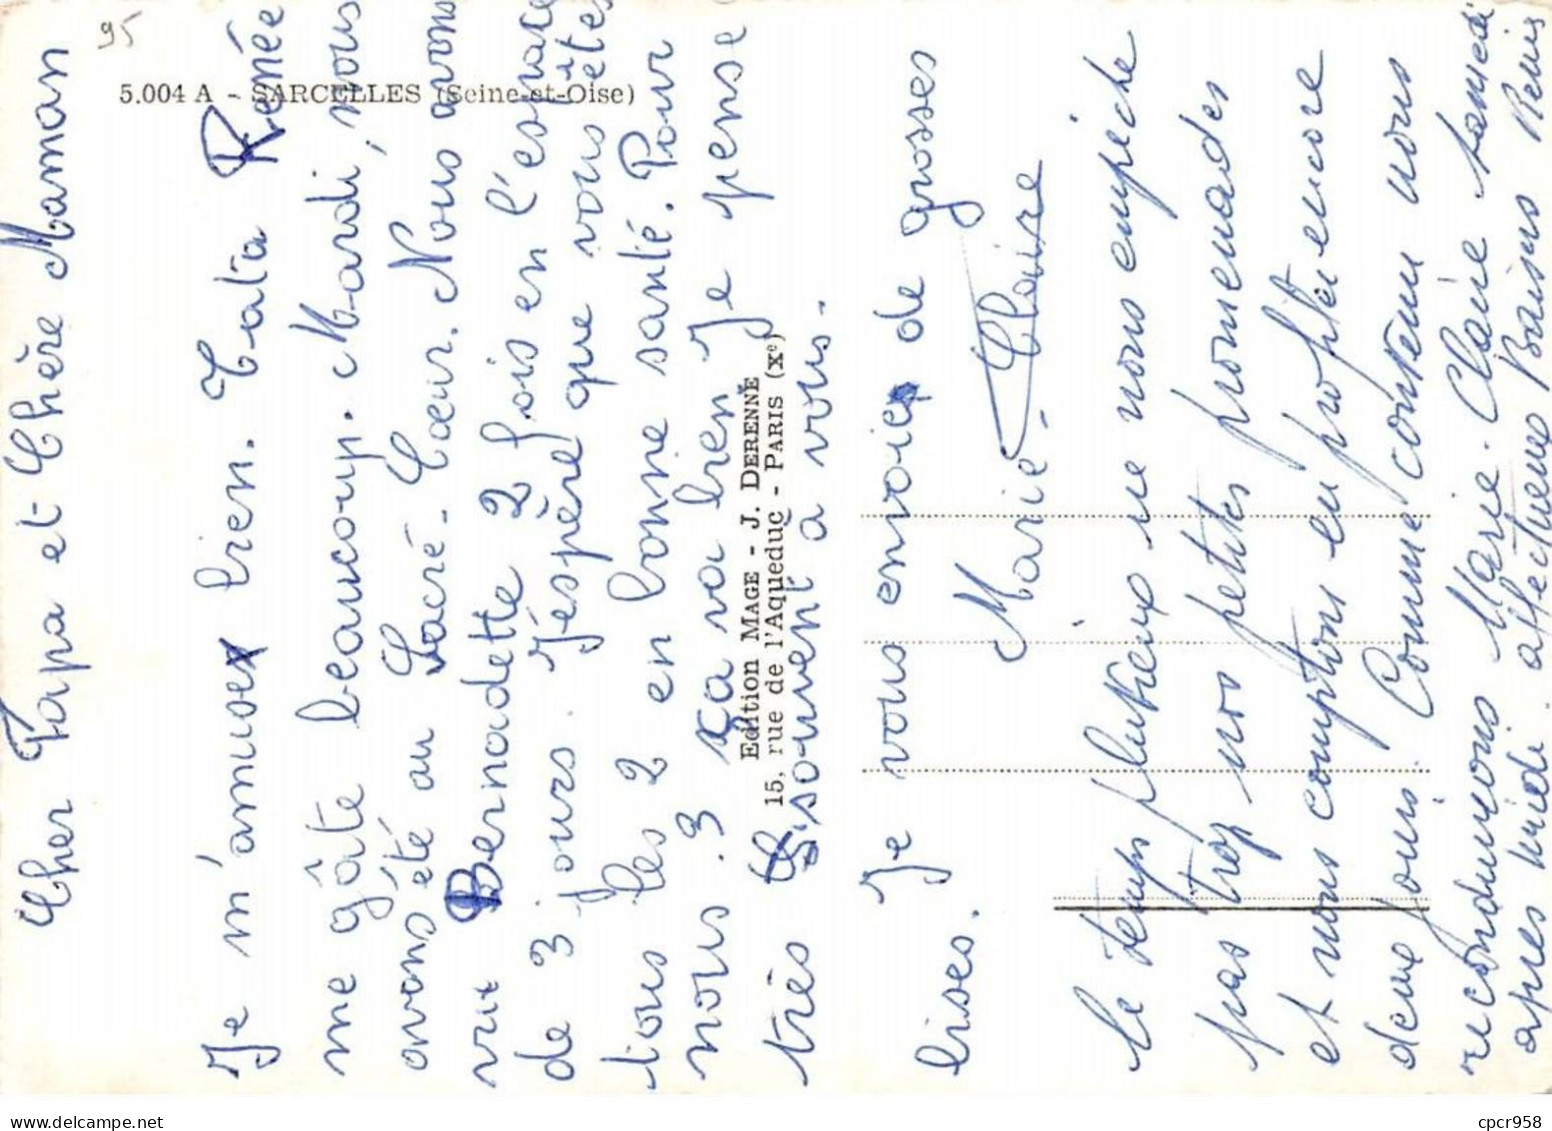 95
5.004 A - SARCELLES (Seine-et-Oise)
Cher Papa et Chère Maman
Je m'amuse bien. Tata Renée
me gâte beaucoup. Mardi, nous
avons été au Sacré-Coeur. Nous avons
vue Bernadette 2 fois en l'espace
de 3 jours. J'éspère que vous êtes
tous les 2 en bonne santé. Pour
nous 3 ça va bien. Je pense
très souvent à vous.
Je vous envoie de grosses
bises. Marie-Claire
Edition MAGE - J. DERENNE
15, rue de l'Aqueduc - PARIS (Xe)
Le temps pluvieux ne nous empêche
pas trop nos petites promenades
et nous comptons en profiter encore
deux jours. Comme convenu nous
reconduirons Marie-Claire samedi
après midi. affectueux Baisers Renée
cpcr958